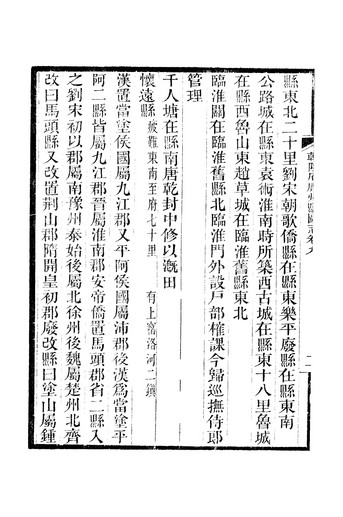 縣東北二十里劉宋朝歌僑縣在縣東樂平廢縣在縣東南
公路城在縣東袁術淮南時所築西古城在縣東十八里魯城
在縣西魯山東趙草城在臨淮舊縣東北
臨淮關在臨淮舊縣北臨淮門外設戶部榷課今歸巡撫侍郎
管理
千人塘在縣南唐乾封中修以漑田
懷遠縣 疲難東南至府七十里 有上窰洛河二鎮
漢置當塗侯國屬九江郡又平阿侯國屬沛郡後漢爲當塗平
阿二縣皆屬九江郡晉屬淮南郡安帝僑置馬頭郡省二縣又
之劉宋初以郡屬南豫州泰始後屬北徐州後魏屬楚州北齊
改曰馬頭縣又改置荆山郡隋開皇初郡廢改縣曰塗山屬鍾